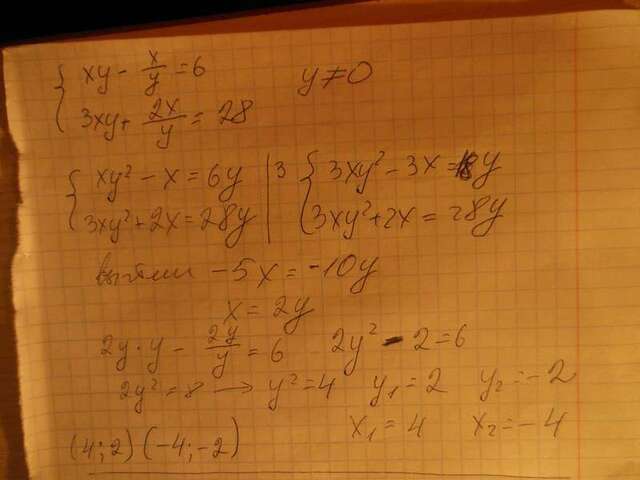 { xy - x/y = 6    y ≠ 0
{ 3xy + 2x/y = 28
{ xy² - x = 6y | 3 { 3xy² - 3x = 18y
{ 3xy² + 2x = 28y | { 3xy² + 2x = 28y
вычтем -5x = -10y
x = 2y
2y · y - 2y/y = 6    2y² - 2 = 6
2y² = 8 → y² = 4    y₁ = 2    y₂ = -2
x₁ = 4    x₂ = -4
(4; 2) (-4; -2)